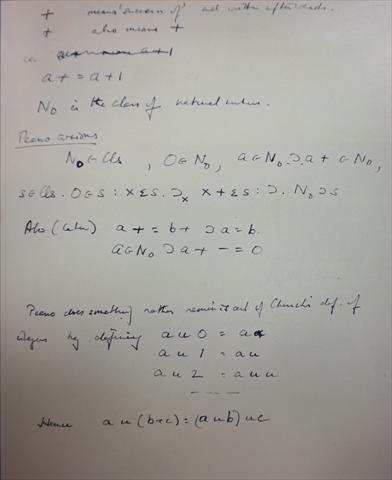 + means 'successor of' and written afterwards.
+ also means +
i.e.
a+ = a+1
N₀ is the class of natural numbers.
Peano axioms
N₀ ∈ Cls , 0 ∈ N₀ , a ∈ N₀ .⊃. a+ ∈ N₀ ,
s ∈ Cls . 0 ∈ s : x ε s . ⊃ₓ x+ ε s : ⊃. N₀ ⊃ s
Also (later) a+ = b+ ⊃ a = b.
a ∈ N₀ ⊃ a+ -= 0
Peano does something rather reminiscent of Church's def. of
integers by defining a u 0 = a
a u 1 = au
a u 2 = auu
----
Hence a u (b+c) = (a u b) u c